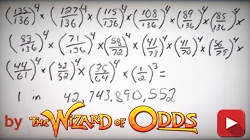 (135/136)⁴ × (127/136)⁴ × (115/136)⁴ × (108/136)⁴ × (89/136)⁴ × (85/136)⁴
(83/136)⁴ × (71/136)⁴ × (58/72)⁴ × (41/73)⁴ × (41/70)⁴ ×
(44/61)⁴ × (52/52)⁴ × × (1/2)³ =
1 in 42,743,890,552
by THE WIZARD OF ODDS